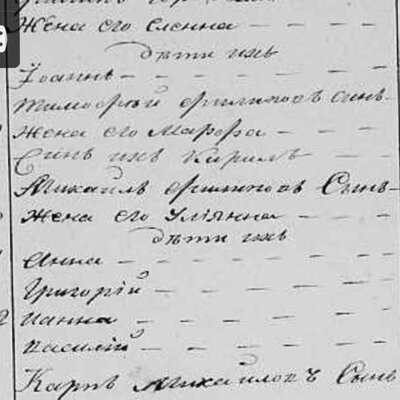 Жена его Елена
дѣти ихъ
Іоаннъ
Тимоѳей Филиповъ Сынъ
Жена его Марѳа
Сынъ ихъ Кирилъ
Михаилъ Филиповъ Сынъ
Жена его Уліянна
дѣти ихъ
Анна
Григорій
Іанна
Василій
Карпъ Михайловъ Сынъ